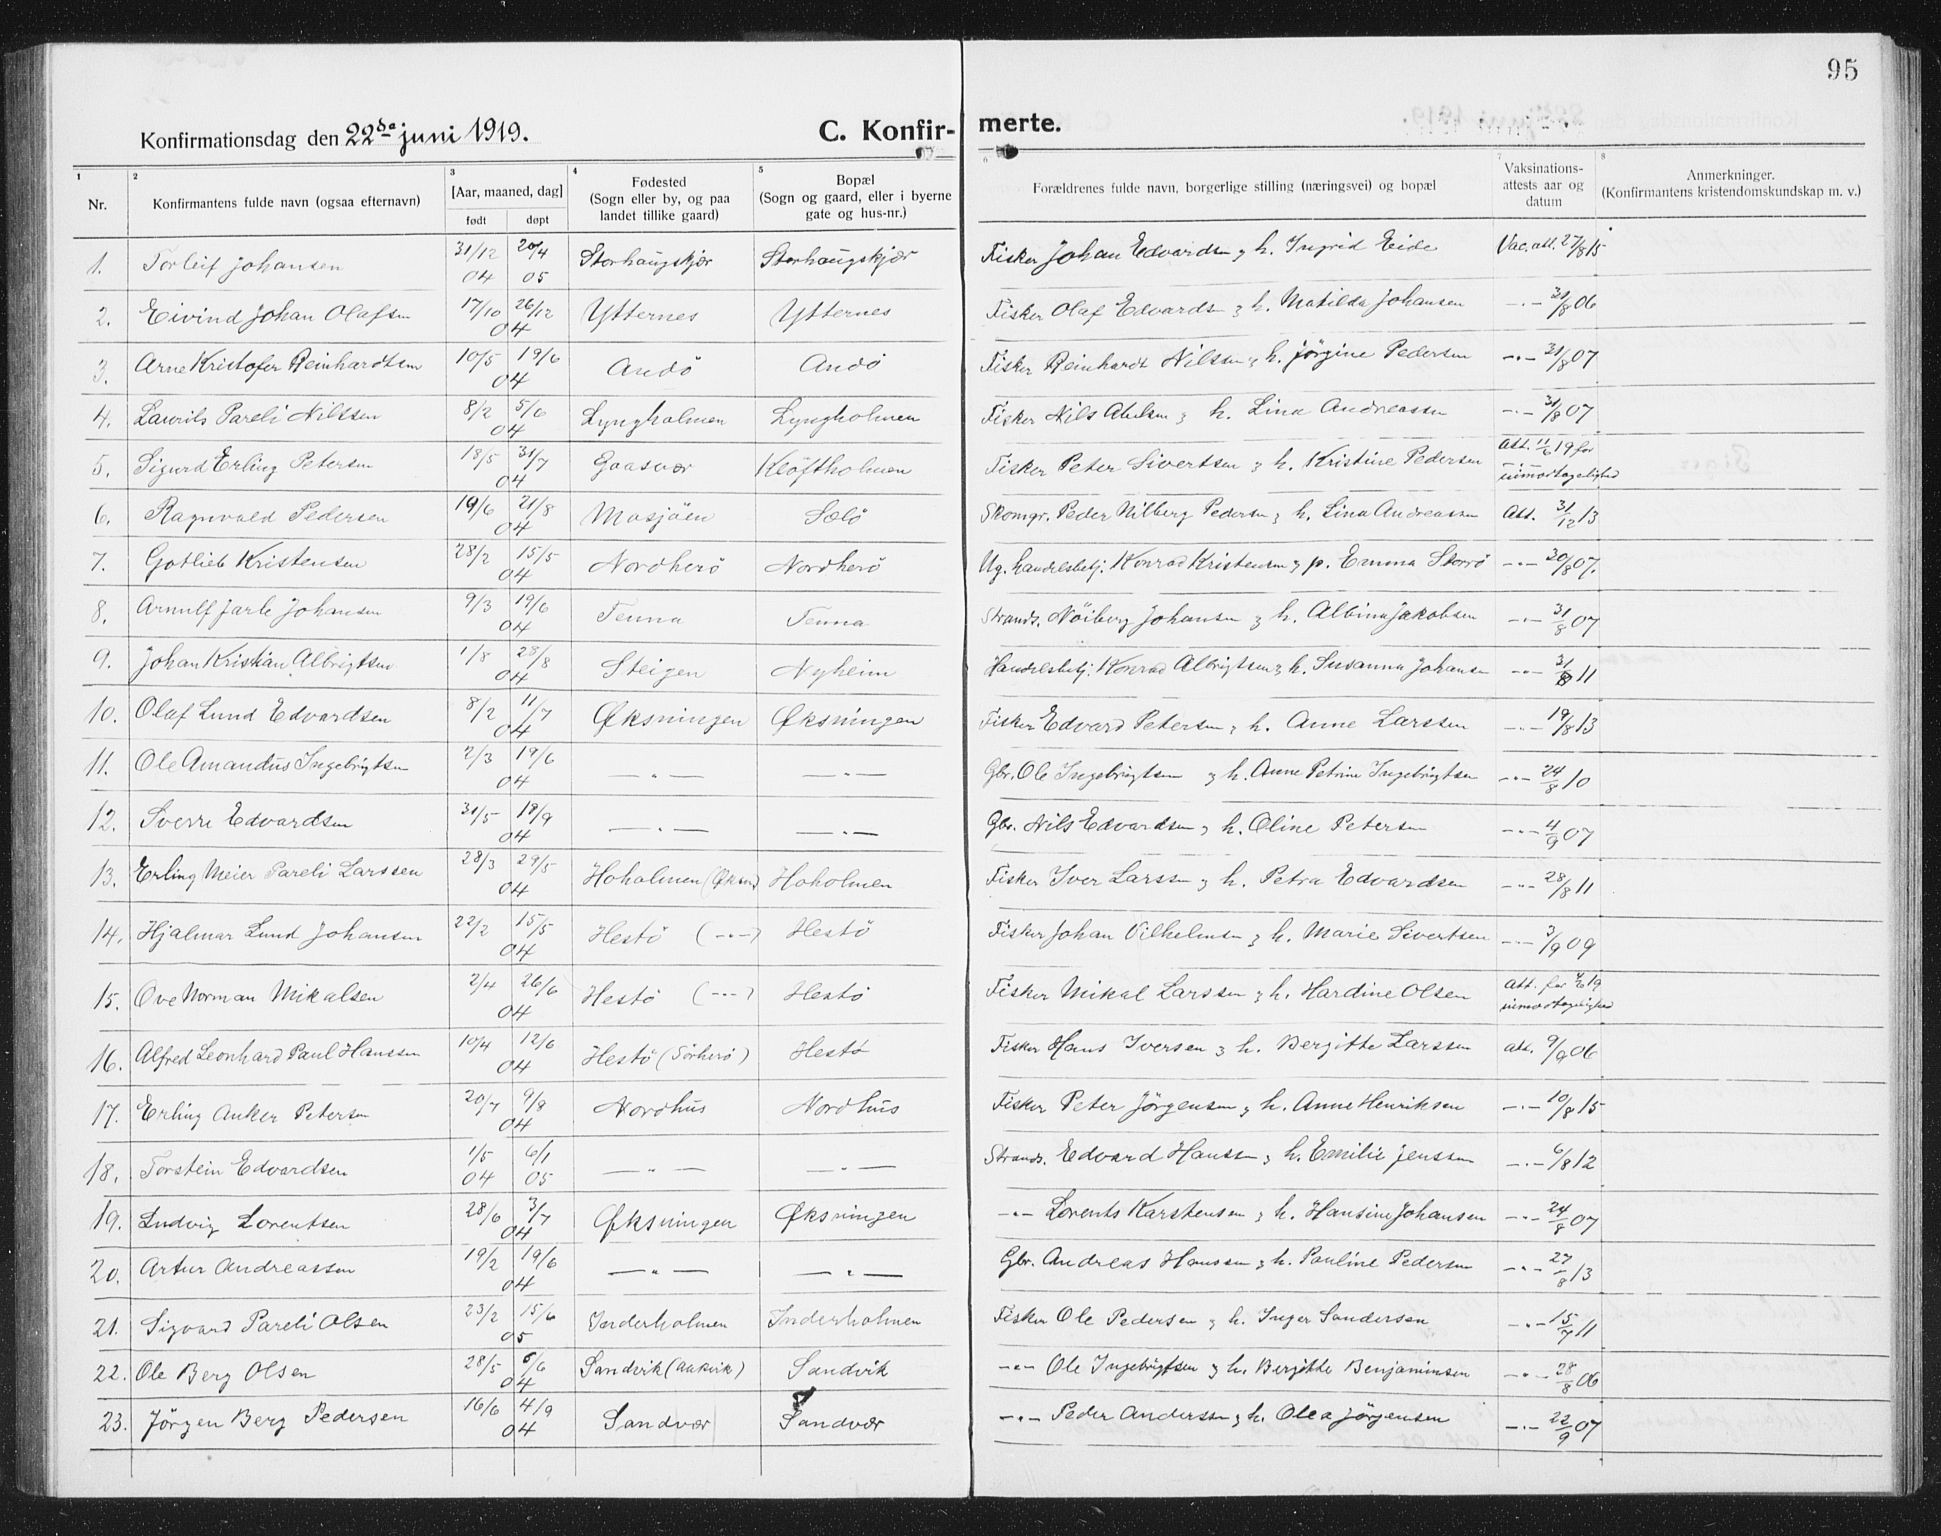 95
Konfirmationsdag den 22de juni 1919. C. Konfir- merte.
1 2 3 4 5 6 7 8
Nr. Konfirmantens fulde navn (ogsaa efternavn) [Aar, maaned, dag] født døpt Fødested (Sogn eller by, og paa landet tillike gaard) Bopæl (Sogn og gaard, eller i byerne gate og hus-nr.) Forældrenes fulde navn, borgerlige stilling (næringsvei) og bopæl Vaksinations-attests aar og datum Anmerkninger. (Konfirmantens kristendomskundskap m. v.)
1. Torleif Johansen 31/12 04 20/4 05 Storhaugskjær Storhaugskjær Fisker Johan Edvardsen og h. Ingrid Eide Vac. att. 27/8 15
2. Eivind Johan Olafsen 17/10 26/12 04 Ytternes Ytternes Fisker Olaf Edvards og h. Matilda Johansen -"- 31/8 06
3. Arne Kristofer Reinhardtsen 10/5 19/6 04 Andö Andö Fisker Reinhardt Nilsen og h. Jörgine Pedersen -"- 31/8 07
4. Laurits Pareli Nilssen 8/2 5/6 04 Lyngholmen Lyngholmen Fisker Nils Abelsen og h. Lina Andreassen -"- 31/8 07
5. Sigurd Erling Petersen 18/5 31/7 04 Gaasvær Klöftholmen Fisker Peter Sivertsen og h. Kristine Pedersen Att. 11/6 19 for uimottagelighed
6. Ragnvald Pedersen 19/6 21/8 04 Mosjöen Sölö Skomgr. Peder Nilberg Pedersen og h. Lina Andreassen Att. 31/12 13
7. Gotlieb Kristensen 28/2 15/5 04 Nordherö Nordherö Ug. handelsbetj. Konrad Kristensen og p. Emma Storrö -"- 30/8 07.
8. Arnulf Jarle Johansen 9/3 19/6 04 Tenna Tenna Strands. Nöiberg Johansen og h. Albina Jakobsen -"- 31/8 07
9. Johan Kristian Albrigtsen 1/8 28/8 04 Steigen Nyheim Handelsbetj. Konrad Albrigtsen og h. Susanna Johansen -"- 31/8 11
10. Olaf Lund Edvardsen 8/2 11/7 04 Øksningen Øksningen Fisker Edvard Petersen og h. Anne Larssen -"- 19/8 13
11. Ole Amandus Ingebrigtsen 2/3 19/6 04 -"- -"- Gbr. Ole Ingebrigtsen og h. Anne Petrine Ingebrigtsen -"- 24/8 10
12. Sverre Edvardsen 31/5 18/9 04 -"- -"- Gbr. Nils Edvardsen og h. Oline Petersen -"- 4/9 07
13. Erling Meier Pareli Larssen 28/3 29/5 04 Hoholmen (Øksn) Hoholmen Fisker Iver Larssen og h. Petra Edvardsen -"- 28/8 11
14. Hjalmar Lund Johansen 22/2 15/5 04 Hestö (-"-) Hestö Fisker Johan Vilhelmsen og h. Marie Sivertsen -"- 3/9 09
15. Ove Norman Mikalsen 2/4 26/6 04 Hestö (-"-) Hestö Fisker Mikal Larssen og h. Hardine Olsen Att. for 19 uimodtagelighed
16. Alfred Leonhard Paul Hanssen 10/4 12/6 04 Hestö (Sörherö) Hestö Fisker Hans Iversen og h. Bergitte Larssen att. 9/9 06
17. Erling Anker Petersen 20/7 9/8 04 Nordhus Nordhus Fisker Peter Jörgensen og h. Anne Henriksen -"- 10/8 15
18. Torstein Edvardsen 1/5 04 6/1 05 -"- -"- Strands. Edvard Hanssen og h. Emilie Jenssen -"- 6/8 12
19. Ludvig Lorentsen 28/6 3/7 04 Øksningen Øksningen -"- Lorents Karstensen og h. Hansine Johansen -"- 24/8 07
20. Artur Andreassen 19/2 19/6 04 -"- -"- Gbr. Andreas Hanssen og h. Pauline Pedersen -"- 27/8 13
21. Sigvard Pareli Olsen 23/2 15/6 05 Inderholmen Inderholmen Fisker Ole Pedersen og h. Inger Sandersen -"- 15/7 11
22. Ole Berg Olsen 28/5 5/6 04 Sandvik (Aakvik) Sandvik -"- Ole Ingebrigtsen og h. Bergitte Benjaminsen -"- 28/8 06
23. Jörgen Berg Pedersen 16/6 4/9 04 Sandvær Sandvær -"- Peder Andersen og h. Olea Jörgensen -"- 22/9 07